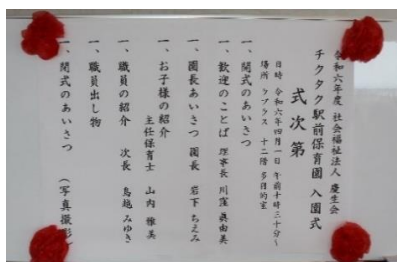 令和六年度 社会福祉法人 慶生会
チクタク駅前保育園 入園式
式次第
日時 令和六年四月一日 午前十時三十分～
場所 ケプラス 十二階 多目的室
一、開式のあいさつ
一、歓迎のことば 理事長 川窪 眞由美
一、園長あいさつ 園長 岩下 ちえみ
一、お子様の紹介
主任保育士 山内 雅美
一、職員の紹介 次長 鳥越 みゆき
一、職員出し物
一、閉式のあいさつ (写真撮影)